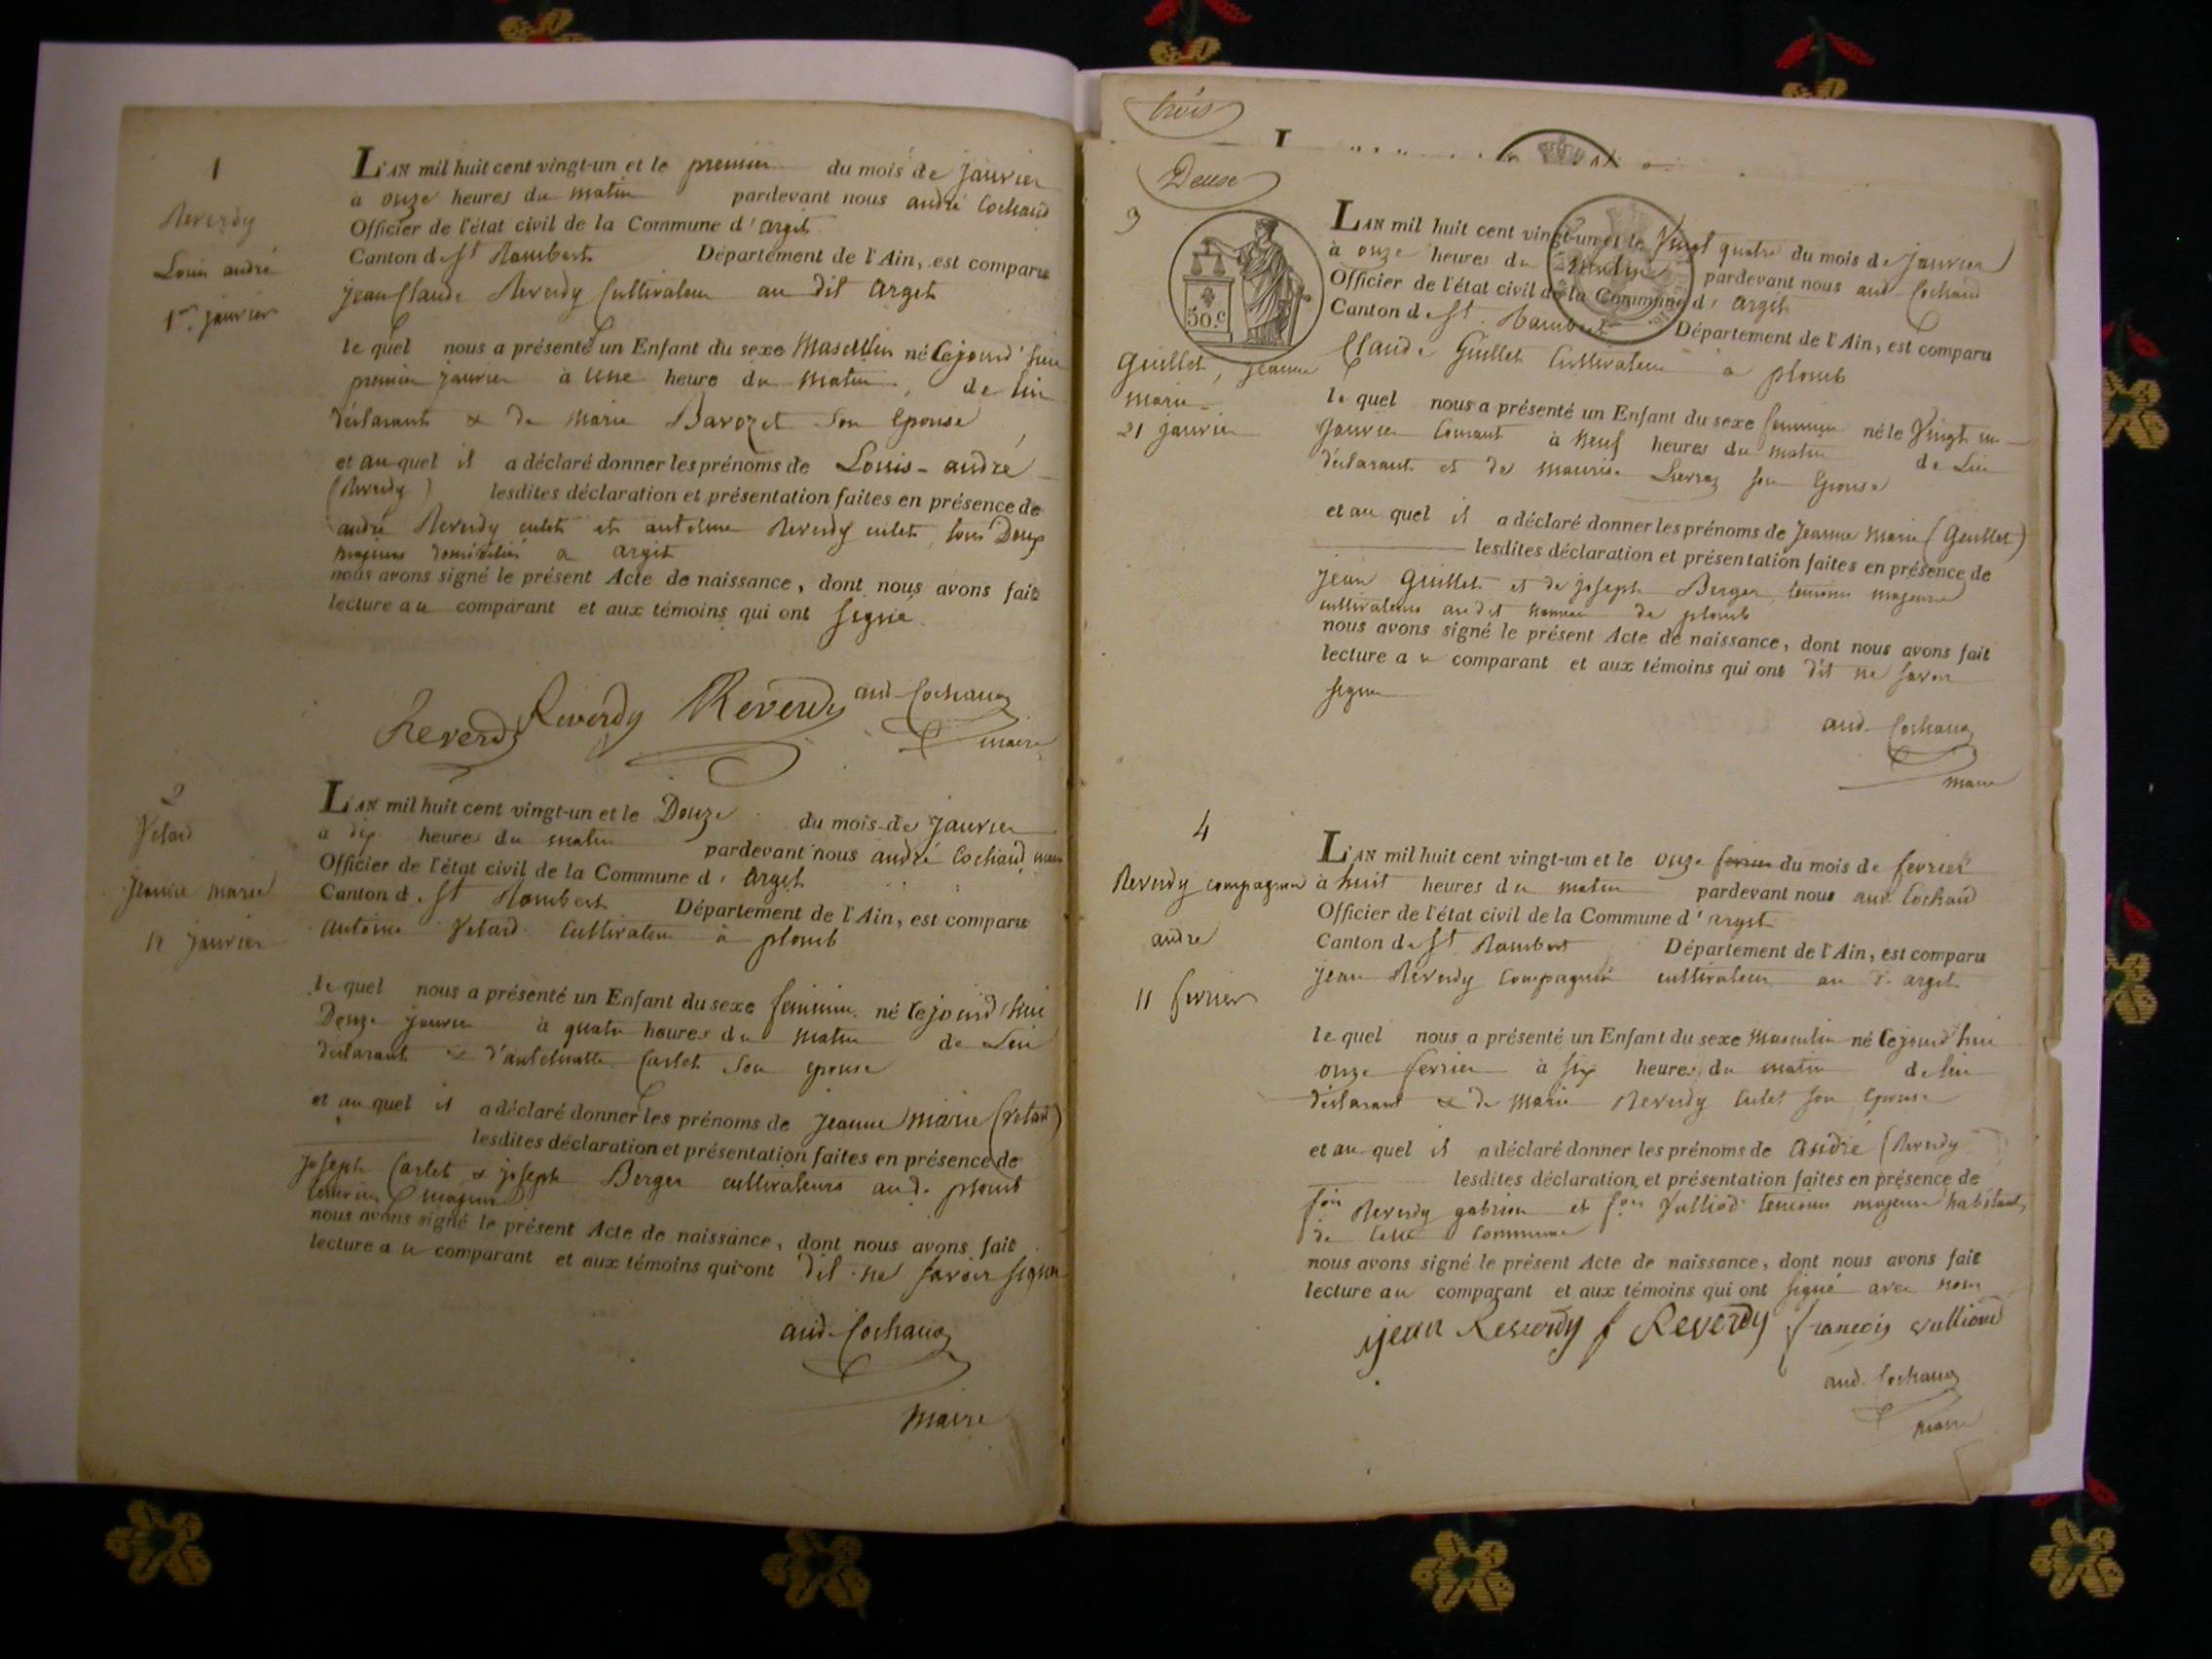 1
Reverdy
Louis andré
1er janvier
L'AN mil huit cent vingt-un et le premier du mois de janvier
à onze heures du matin pardevant nous andré Cochaud
Officier de l'état civil de la Commune d'argit
Canton de St Rambert Département de l'Ain, est comparu
jean Claude Reverdy Cultivateur au dit argit
le quel nous a présenté un Enfant du sexe Masculin né Cejourd'hui
premier janvier à une heure du matin, de lui
déclarant & de Marie Barozet son Epouse
et au quel il a déclaré donner les prénoms de Louis-andré
(Reverdy) lesdites déclaration et présentation faites en présence de
andré Reverdy culet et antelme Reverdy culet, tous Deux
majeurs domiciliés a argit
nous avons signé le présent Acte de naissance, dont nous avons fait
lecture au comparant et aux témoins qui ont signé
Reverdy Reverdy Reverdy and Cochaud
maire
2
Vetard
Jeanne marie
12 janvier
L'AN mil huit cent vingt-un et le Douze du mois de janvier
à dix heures du matin pardevant nous andré Cochaud maire
Officier de l'état civil de la Commune d'argit
Canton d. St Rambert Département de l'Ain, est comparu
antoine Vetard Cultivateur à plomb
le quel nous a présenté un Enfant du sexe feminin né cejourd'hui
Douze janvier à quatre heures du matin de Lui
déclarant & d'antelmette Carlet son epouse
et au quel il a déclaré donner les prénoms de jeanne marie (Vetard)
lesdites déclaration et présentation faites en présence de
joseph Carlet & joseph Berger cultivateurs aud. plomb
temoins majeurs
nous avons signé le présent Acte de naissance, dont nous avons fait
lecture au comparant et aux témoins qui ont dit ne savoir signer
and Cochaud
maire
trois
Deuxe
3
50.c
Guillet, jeanne
marie
21 janvier
L'AN mil huit cent vingt-un et le Vingt quatre du mois de janvier
à onze heures du matin pardevant nous and Cochaud
Officier de l'état civil de la Commune d'argit
Canton de St. Rambert Département de l'Ain, est comparu
Claude Guillet Cultivateur à plomb
le quel nous a présenté un Enfant du sexe feminin né le Vingt un
janvier Courant à Neuf heures du matin de Lui
déclarant et de son Epouse
et au quel il a déclaré donner les prénoms de Jeanne Marie (Guillet)
lesdites déclaration et présentation faites en présence de
jean Guillet et de joseph Berger, temoins majeurs
cultivateurs audit hameau de plomb
nous avons signé le présent Acte de naissance, dont nous avons fait
lecture au comparant et aux témoins qui ont dit ne savoir
signer
and Cochaud
maire
4
Reverdy compagnon
andre
11 fevrier
L'AN mil huit cent vingt-un et le onze fevrier du mois de fevrier
à huit heures du matin pardevant nous and. Cochaud
Officier de l'état civil de la Commune d'argit
Canton de St Rambert Département de l'Ain, est comparu
jean Reverdy Compagnon cultivateur au d. argit
le quel nous a présenté un Enfant du sexe Masculin né Cejourd'hui
onze fevrier à six heures du matin de lui
déclarant & de Marie Reverdy Culet son Epouse
et au quel il a déclaré donner les prénoms de André (Reverdy
lesdites déclaration et présentation faites en présence de
fois Reverdy gabrion et fois Vulliod temoins majeurs habitants
de cette Commune
nous avons signé le présent Acte de naissance, dont nous avons fait
lecture au comparant et aux témoins qui ont signé avec nous
jean Reverdy f Reverdy francois vulliod
and. Cochaud
maire